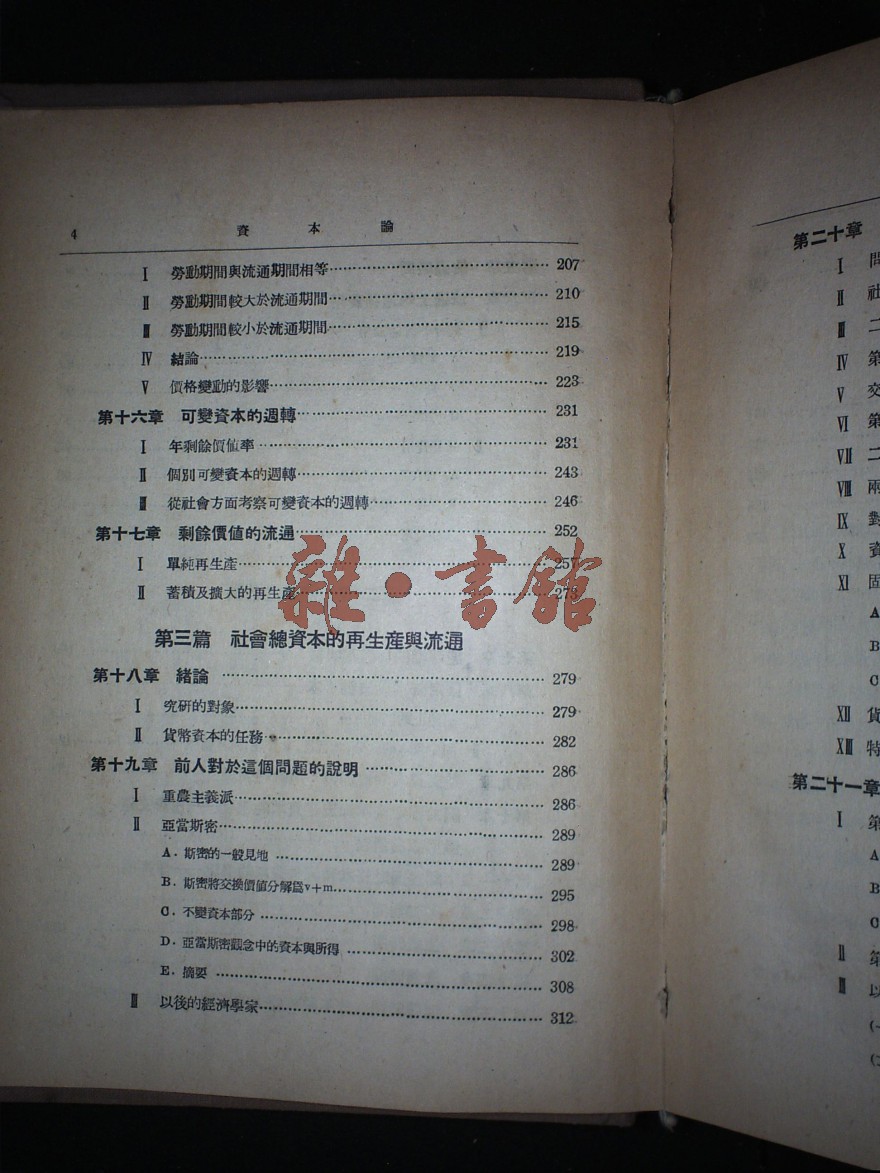 4 資本論
I 勞動期間與流通期間相等 207
II 勞動期間較大於流通期間 210
III 勞動期間較小於流通期間 215
IV 結論 219
V 價格變動的影響 223
第十六章 可變資本的週轉 231
I 年剩餘價値率 231
II 個別可變資本的週轉 243
III 從社會方面考察可變資本的週轉 246
第十七章 剩餘價値的流通 252
I 單純再生產 257
II 蓄積及擴大的再生產 273
雜•書館
第三篇 社會總資本的再生產與流通
第十八章 緒論 279
I 究研的對象 279
II 貨幣資本的任務 282
第十九章 前人對於這個問題的說明 286
I 重農主義派 286
II 亞當斯密 289
A. 斯密的一般見地 289
B. 斯密將交換價値分解爲v+m 295
C. 不變資本部分 298
D. 亞當斯密觀念中的資本與所得 302
E. 摘要 308
III 以後的經濟學家 312
第二十章
I 問
II 社
III 二
IV 第
V 交
VI 第
VII 二
VIII 兩
IX 對
X 資
XI 固
A
B
C
XII 貨
XIII 特
第二十一章
I 第
A
B
C
II 第
III 以